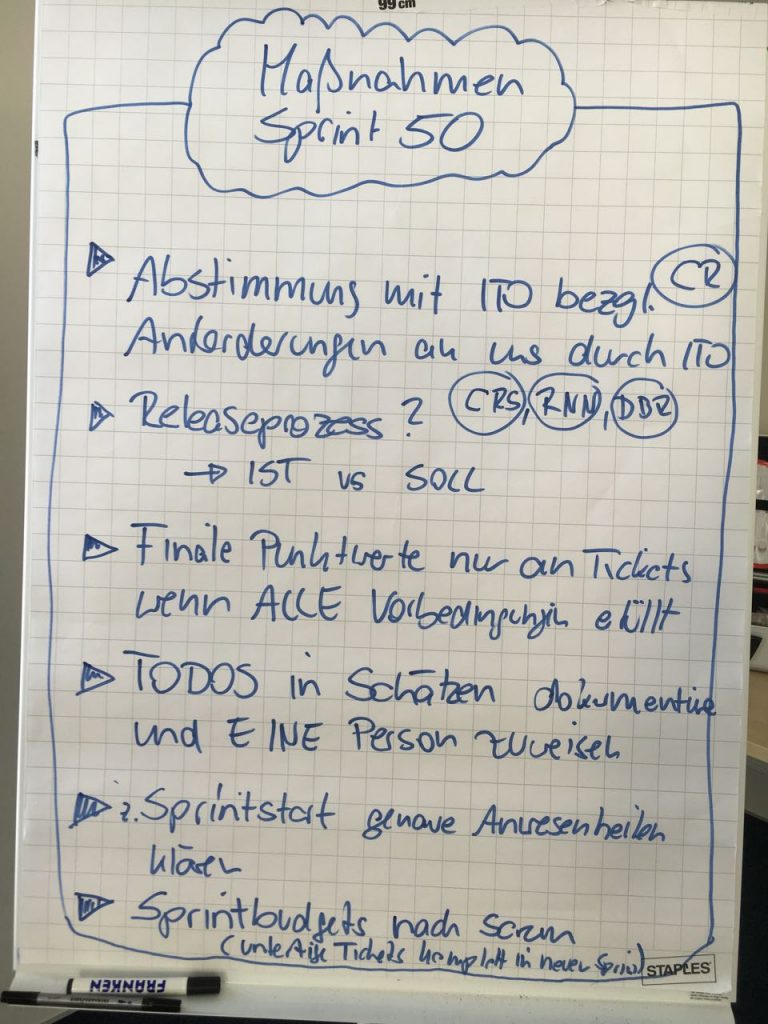 99 cm
Maßnahmen
Sprint 50
Abstimmung mit ITO bezgl. CR
Anforderungen an uns durch ITO
Releaseprozess ? CRS, RNN, DDR
→ IST vs SOLL
Finale Punktwerte nur an Tickets
wenn ALLE Vorbedingungen efüllt
TODOS in Schätzen dokumentiere
und EINE Person zuweisen
z. Sprintstart genaue Anwesenheiten
klären
Sprintbudgets nach Scrum
(unfertige Tickets komplett in neuen Sprint)
STAPLES
FRANKEN